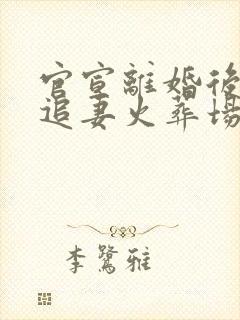 官宣離婚後
追妻火葬場
李鷺雅